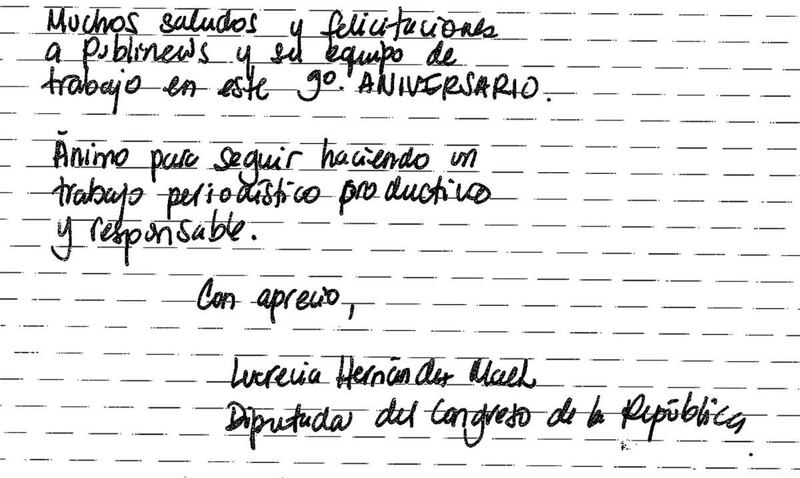 Muchos saludos y felicitaciones
a Publinews y su equipo de
trabajo en este 9º. ANIVERSARIO.
Ánimo para seguir haciendo un
trabajo periodístico productivo
y responsable.
Con aprecio,
Lucrecia Hernández Mack
Diputada del Congreso de la República